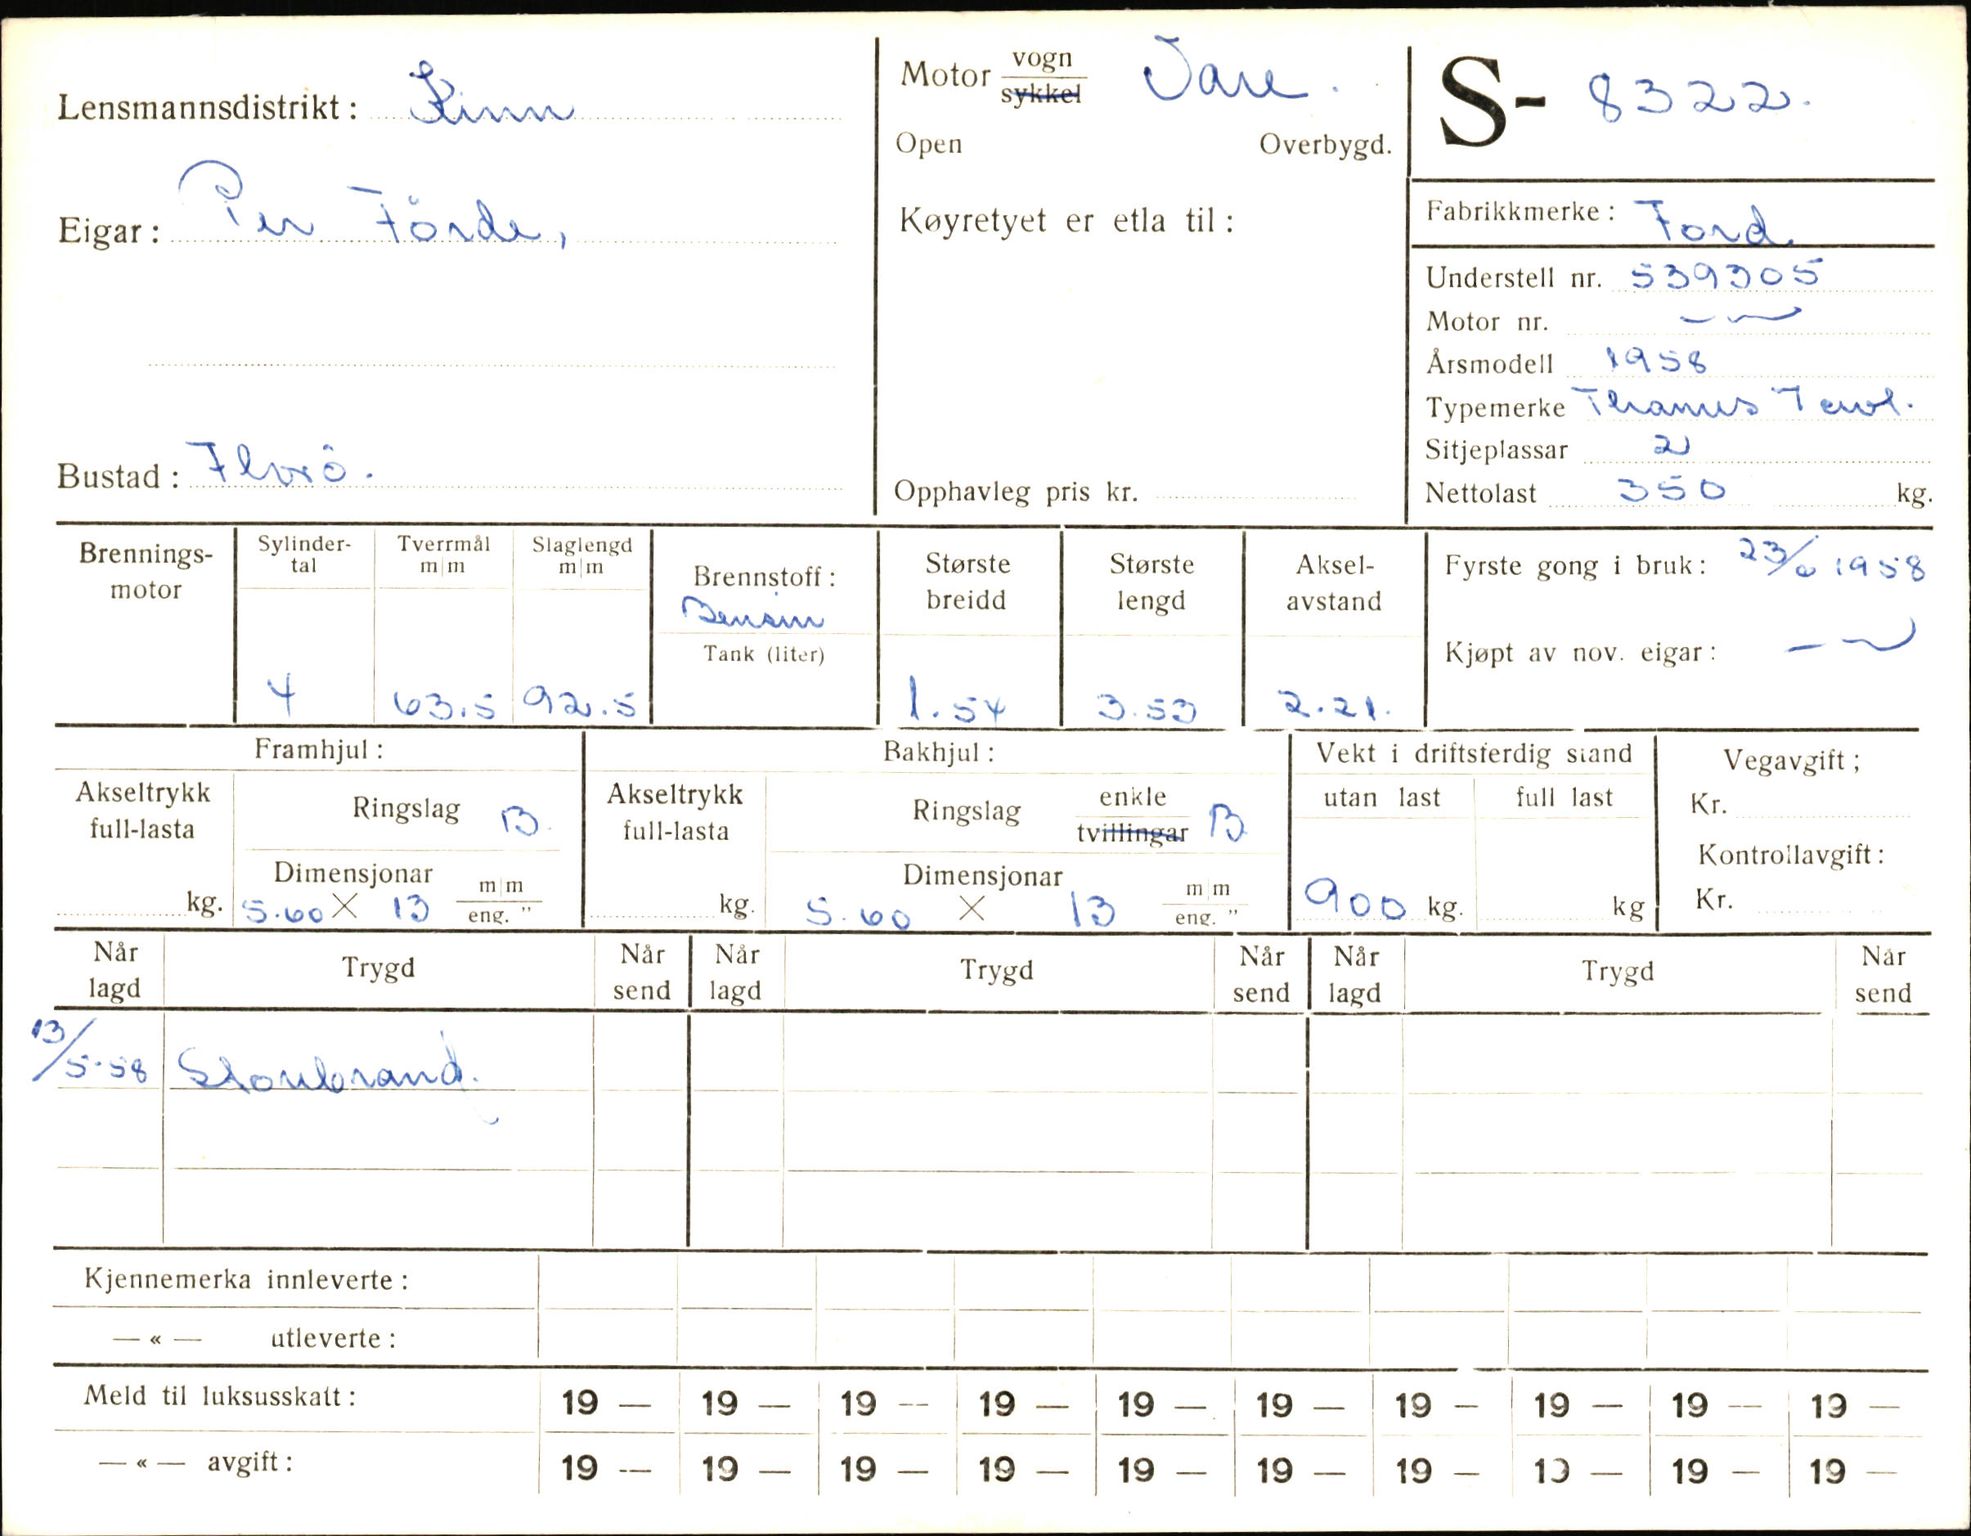 Lensmannsdistrikt: Kinn
Motor vogn sykkel Vare.
S- 8322.
Open Overbygd.
Eigar: Per Förde,
Køyretyet er etla til:
Fabrikkmerke: Ford
Understell nr. 539305
Motor nr.
Årsmodell 1958
Typemerke
Sitjeplassar 2
Bustad: Florö.
Opphavleg pris kr.
Nettolast 350 kg.
Brennings-motor
Sylinder-tal 4
Tverrmål m|m 63.5
Slaglengd m|m 92.5
Brennstoff: Bensin
Tank (liter)
Største breidd 1.54
Største lengd 3.53
Aksel-avstand 2.21.
Fyrste gong i bruk: 23/6 1958
Kjøpt av nov. eigar:
Framhjul:
Akseltrykk full-lasta kg.
Ringslag B.
Dimensjonar 5.60 X 13 m|m eng. "
Bakhjul:
Akseltrykk full-lasta kg.
Ringslag enkle tvillingar B
Dimensjonar 5.60 X 13 m|m eng. "
Vekt i driftsferdig stand
utan last 900 kg.
full last kg
Vegavgift;
Kr.
Kontrollavgift:
Kr.
Når lagd Trygd Når send Når lagd Trygd Når send Når lagd Trygd Når send
13/5-58 Storebrand.
Kjennemerka innleverte:
— « — utleverte:
Meld til luksusskatt: 19 — 19 — 19 — 19 — 19 — 19 — 19 — 19 — 19 — 19 —
— « — avgift: 19 — 19 — 19 — 19 — 19 — 19 — 19 — 19 — 19 — 19 —